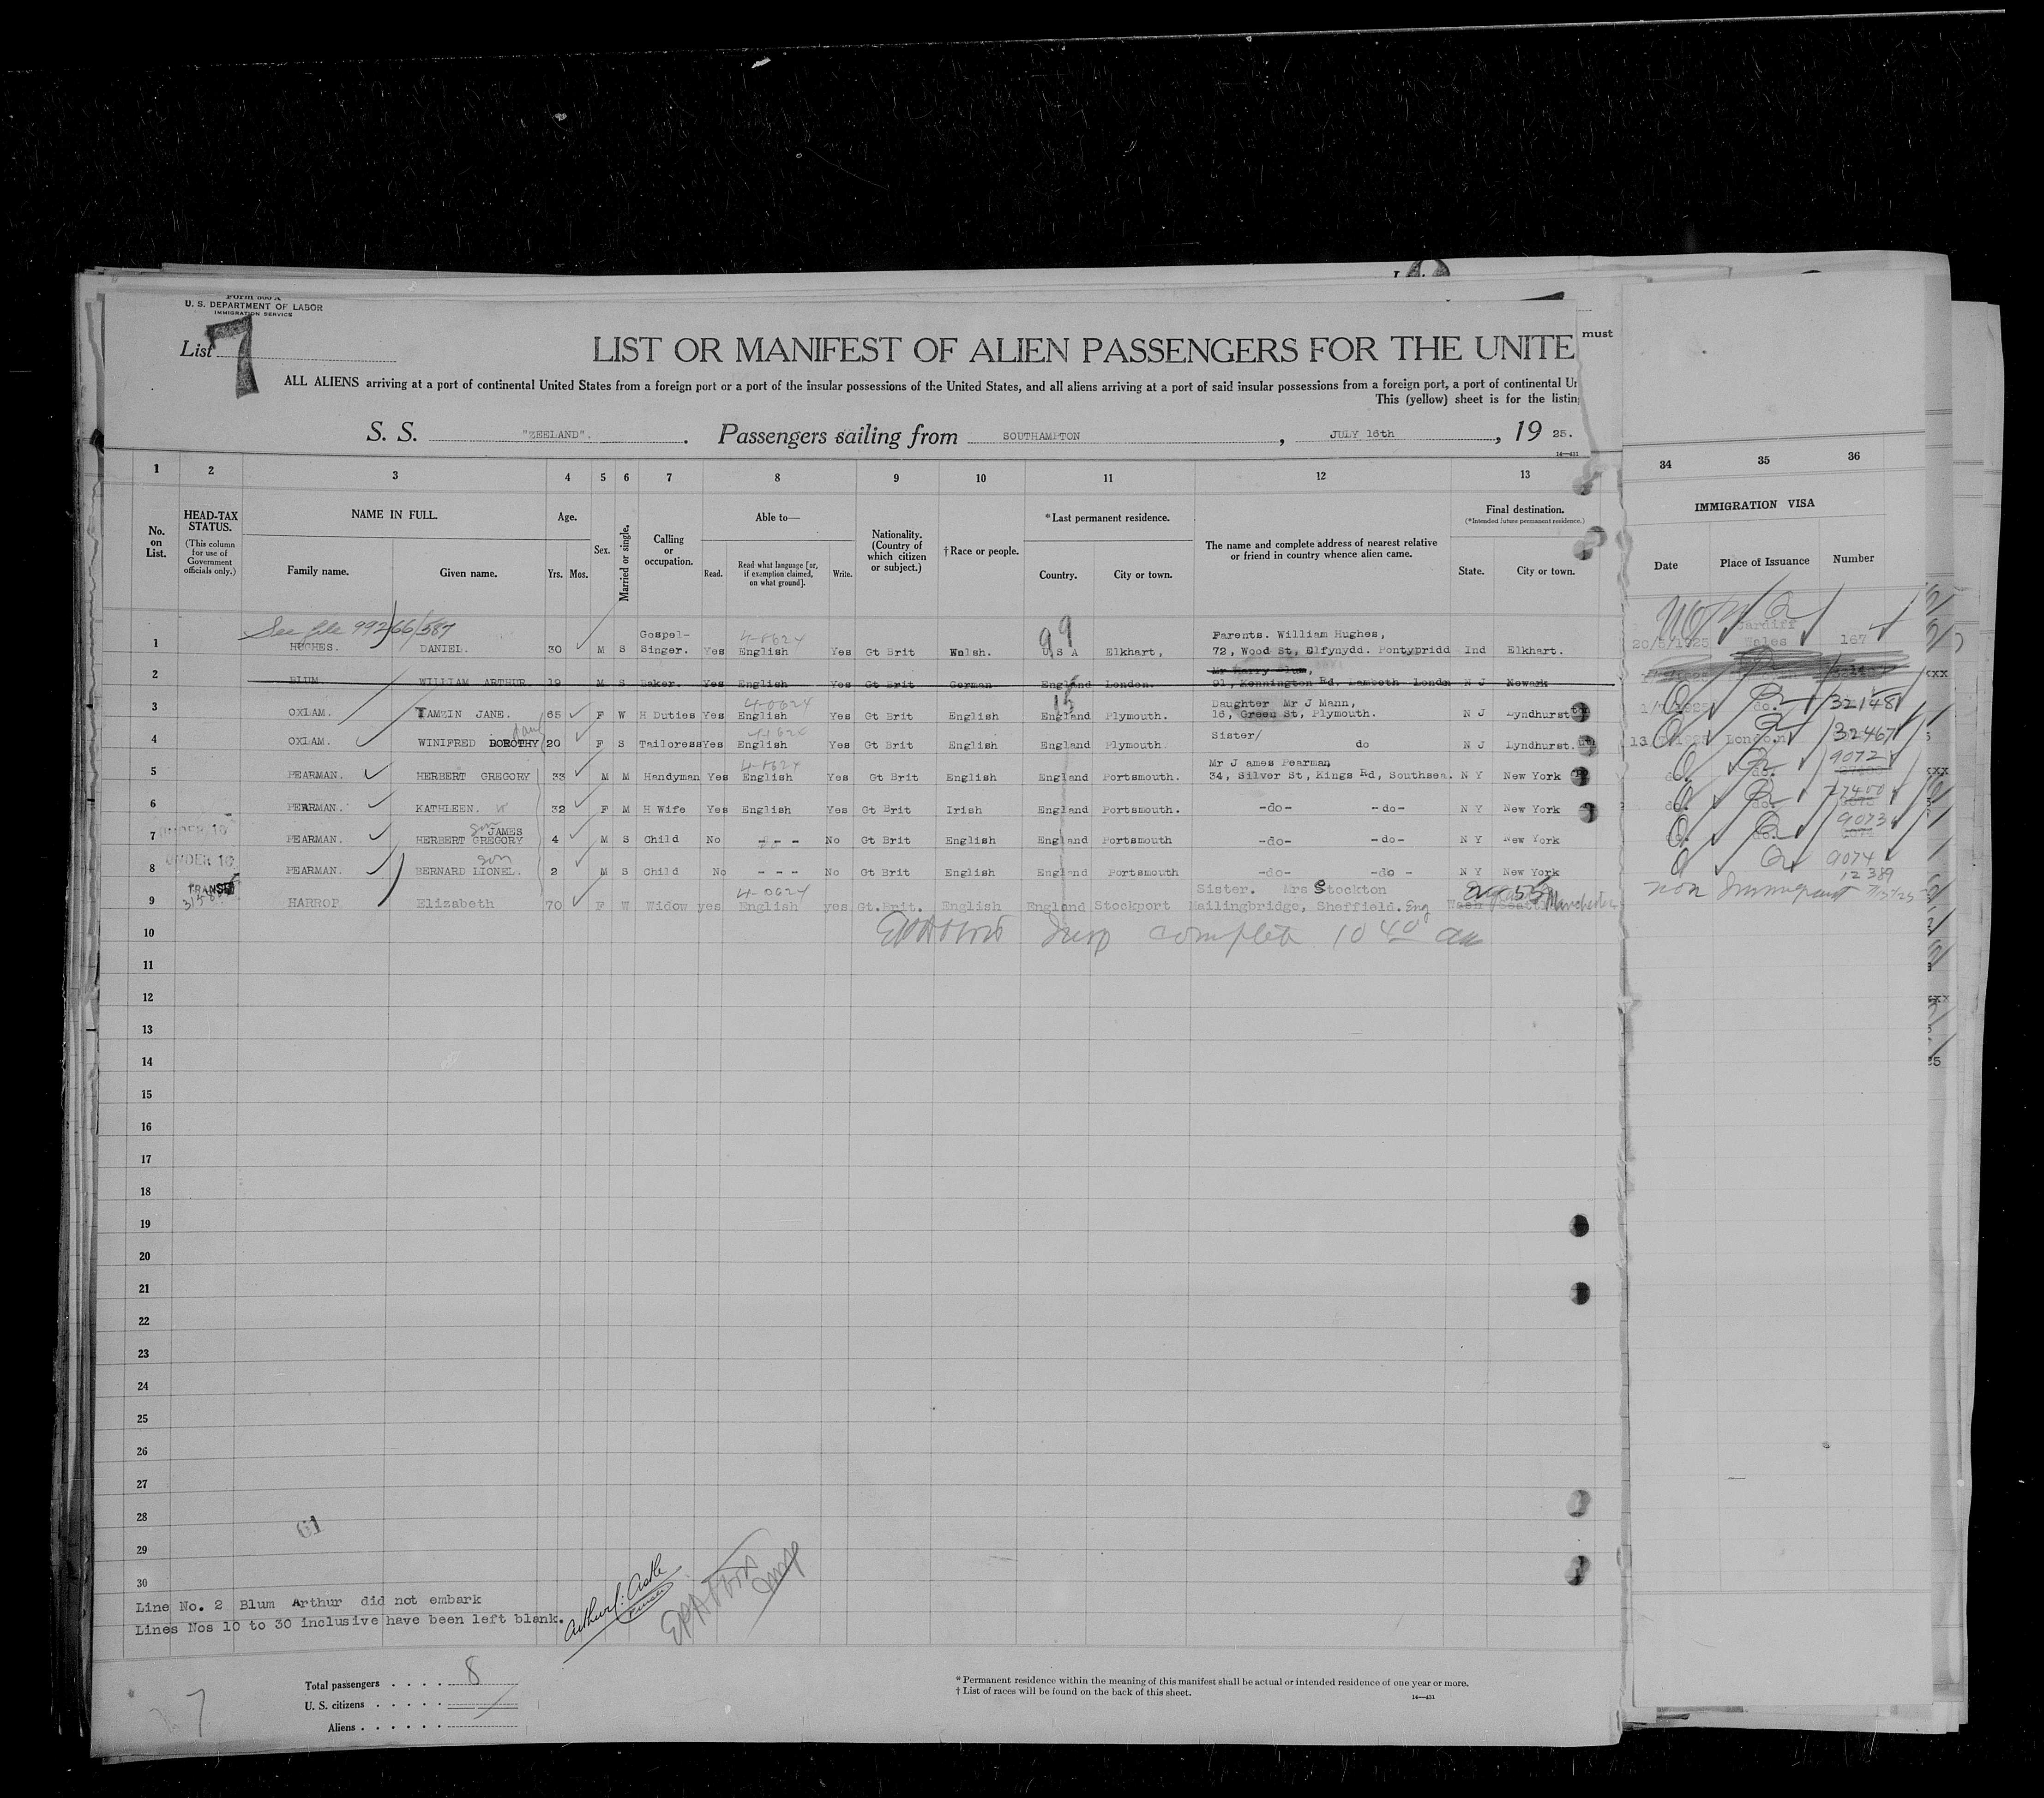 U. S. DEPARTMENT OF LABOR
IMMIGRATION SERVICE
List 7
must
LIST OR MANIFEST OF ALIEN PASSENGERS FOR THE UNITE
ALL ALIENS arriving at a port of continental United States from a foreign port or a port of the insular possessions of the United States, and all aliens arriving at a port of said insular possessions from a foreign port, a port of continental
This (yellow) sheet is for the listing
S. S. "ZEELAND". Passengers sailing from SOUTHAMPTON, JULY 16th, 19 25.
14—431
1 2 3 4 5 6 7 8 9 10 11 12 13 34 35 36
No. on List.
HEAD-TAX STATUS.
(This column for use of Government officials only.)
NAME IN FULL.
Family name. Given name.
Age.
Yrs. Mos.
Sex.
Married or single.
Calling or occupation.
Able to—
Read. Read what language [or, if exemption claimed, on what ground]. Write.
Nationality. (Country of which citizen or subject.)
†Race or people.
*Last permanent residence.
Country. City or town.
The name and complete address of nearest relative or friend in country whence alien came.
Final destination.
(*Intended future permanent residence.)
State. City or town.
IMMIGRATION VISA
Date Place of Issuance Number
See file 99266/587
Gospel- Parents. William Hughes, Cardiff
1 HUGHES. DANIEL. 30 M S Singer. Yes English Yes Gt Brit Welsh. U S A Elkhart, 72, Wood St, Elfynydd. Pontypridd Ind Elkhart. 20/5/1925 Wales 167
99
Mr Harry Blum,
2 BLUM. WILLIAM ARTHUR. 19 M S Baker. Yes English Yes Gt Brit German England London. 91, Kennington Rd. Lambeth Londn N J Newark
15
Daughter Mr J Mann,
3 OXLAM. TAMZIN JANE. 65 F W H Duties Yes English Yes Gt Brit English England Plymouth. 16, Green St, Plymouth. N J Lyndhurst do. 32148
dau
Sister/
4 OXLAM. WINIFRED DOROTHY 20 F S Tailoress Yes English Yes Gt Brit English England Plymouth. do N J Lyndhurst. London 32467
Mr J ames Pearman 9072
5 PEARMAN. HERBERT GREGORY 33 M M Handyman Yes English Yes Gt Brit English England Portsmouth. 34, Silver St, Kings Rd, Southsea. N Y New York
6 PEARMAN. KATHLEEN. 32 F M H Wife Yes English Yes Gt Brit Irish England Portsmouth. -do- -do- N Y New York
UNDER 16 son JAMES 9073
7 PEARMAN. HERBERT GREGORY 4 M S Child No - - - No Gt Brit English England Portsmouth -do- -do- N Y New York
UNDER 16 son 9074
8 PEARMAN. BERNARD LIONEL. 2 M S Child No - - - No Gt Brit English England Portsmouth -do- -do - N Y New York
TRANSIT Sister. Mrs Stockton 12389
9 HARROP Elizabeth 70 F W Widow yes English yes Gt.Brit. English England Stockport Mailingbridge, Sheffield. Eng Manchester non Immigrant
10 Insp complete 10 40 am
11
12
13
14
15
16
17
18
19
20
21
22
23
24
25
26
27
28
61
29
30
Line No. 2 Blum Arthur did not embark
Lines Nos 10 to 30 inclusive have been left blank.
Total passengers . . . . 8
U. S. citizens . . . . .
Aliens . . . . . .
7
*Permanent residence within the meaning of this manifest shall be actual or intended residence of one year or more.
†List of races will be found on the back of this sheet.
14—431